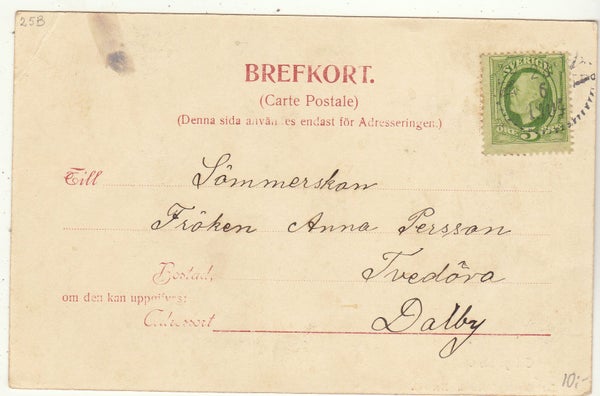 25B
SVERIGE
ÖRE 5
BREFKORT.
(Carte Postale)
(Denna sida användes endast för Adresseringen.)
Till Sömmerskan
Fröken Anna Persson
Bostad, Tvedöra
om den kan uppgifves:
Adressort Dalby
10:-